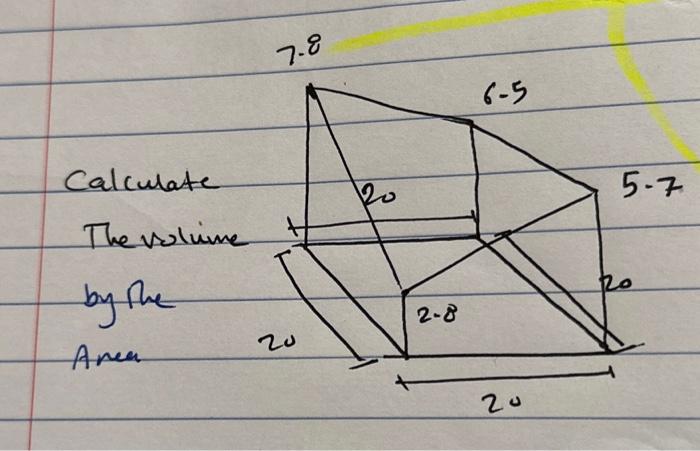 7-8
6-5
Calculate
5-7
20
The volume
by the
20
2-8
20
Area
20